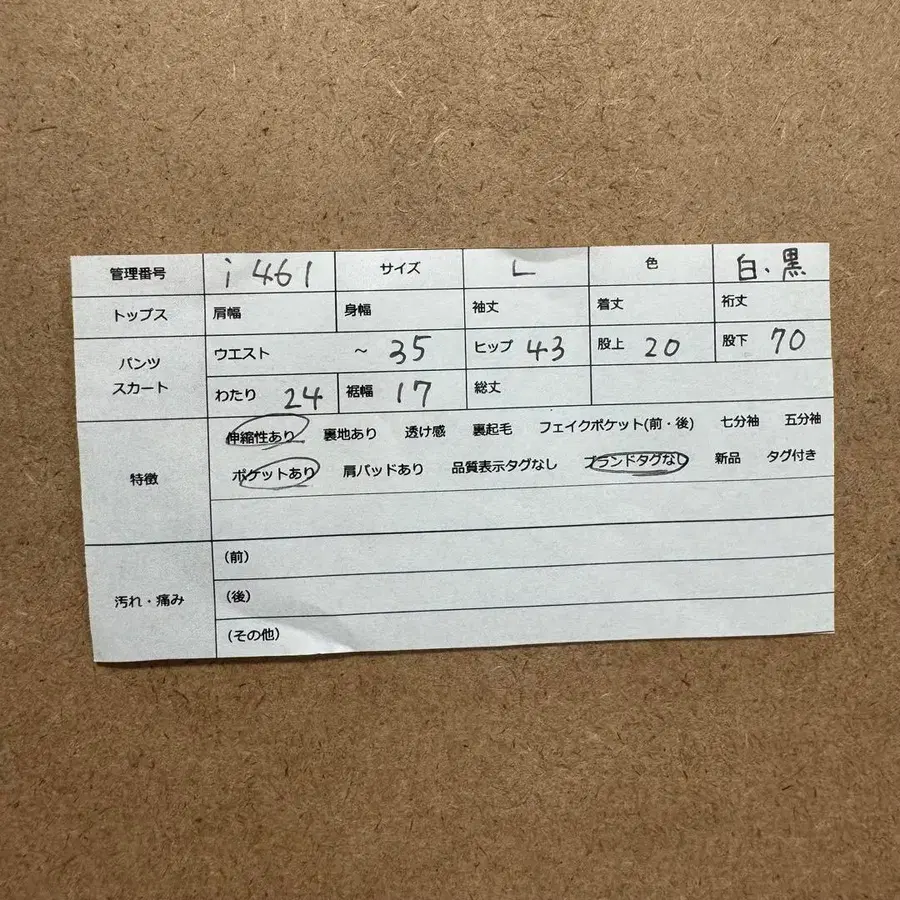 管理番号 i461 サイズ L 色 白、黒
トップス 肩幅 身幅 袖丈 着丈 裄丈
パンツ スカート ウエスト ～35 ヒップ 43 股上 20 股下 70
わたり 24 裾幅 17 総丈
特徴 伸縮性あり 裏地あり 透け感 裏起毛 フェイクポケット(前・後) 七分袖 五分袖
ポケットあり 肩パッドあり 品質表示タグなし ブランドタグなし 新品 タグ付き
汚れ・痛み (前)
(後)
(その他)